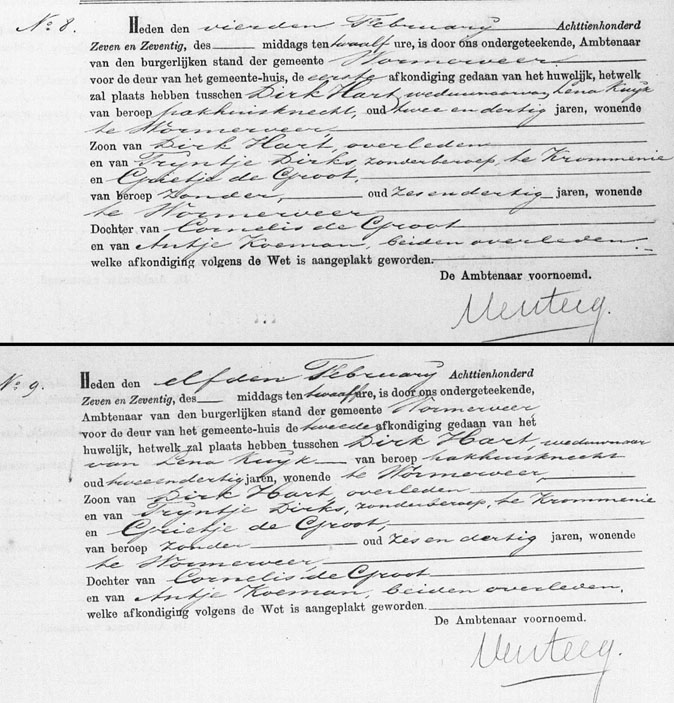 No. 8. Heden den vierden February Achttienhonderd
Zeven en Zeventig, des middags ten twaalf ure, is door ons ondergeteekende, Ambtenaar
van den burgerlijken stand der gemeente Wormerveer
voor de deur van het gemeente-huis, de eerste afkondiging gedaan van het huwelijk, hetwelk
zal plaats hebben tusschen Dirk Hart, weduwnaar van Lena Kuyk
van beroep pakhuisknecht, oud twee en dertig jaren, wonende
te Wormerveer
Zoon van Dirk Hart, overleden
en van Tryntje Dirks, zonder beroep, te Krommenie
en Grietje de Groot,
van beroep zonder, oud zes en dertig jaren, wonende
te Wormerveer
Dochter van Cornelis de Groot
en van Antje Koeman, beiden overleden.
welke afkondiging volgens de Wet is aangeplakt geworden.
De Ambtenaar voornoemd.
No. 9. Heden den elfden February Achttienhonderd
Zeven en Zeventig, des middags ten twaalf ure, is door ons ondergeteekende,
Ambtenaar van den burgerlijken stand der gemeente Wormerveer
voor de deur van het gemeente-huis de tweede afkondiging gedaan van het
huwelijk, hetwelk zal plaats hebben tusschen Dirk Hart, weduwnaar
van Lena Kuyk van beroep pakhuisknecht
oud twee en dertig jaren, wonende te Wormerveer,
Zoon van Dirk Hart, overleden
en van Tryntje Dirks, zonder beroep, te Krommenie
en Grietje de Groot,
van beroep zonder oud zes en dertig jaren, wonende
te Wormerveer,
Dochter van Cornelis de Groot
en van Antje Koeman, beiden overleden,
welke afkondiging volgens de Wet is aangeplakt geworden.
De Ambtenaar voornoemd.